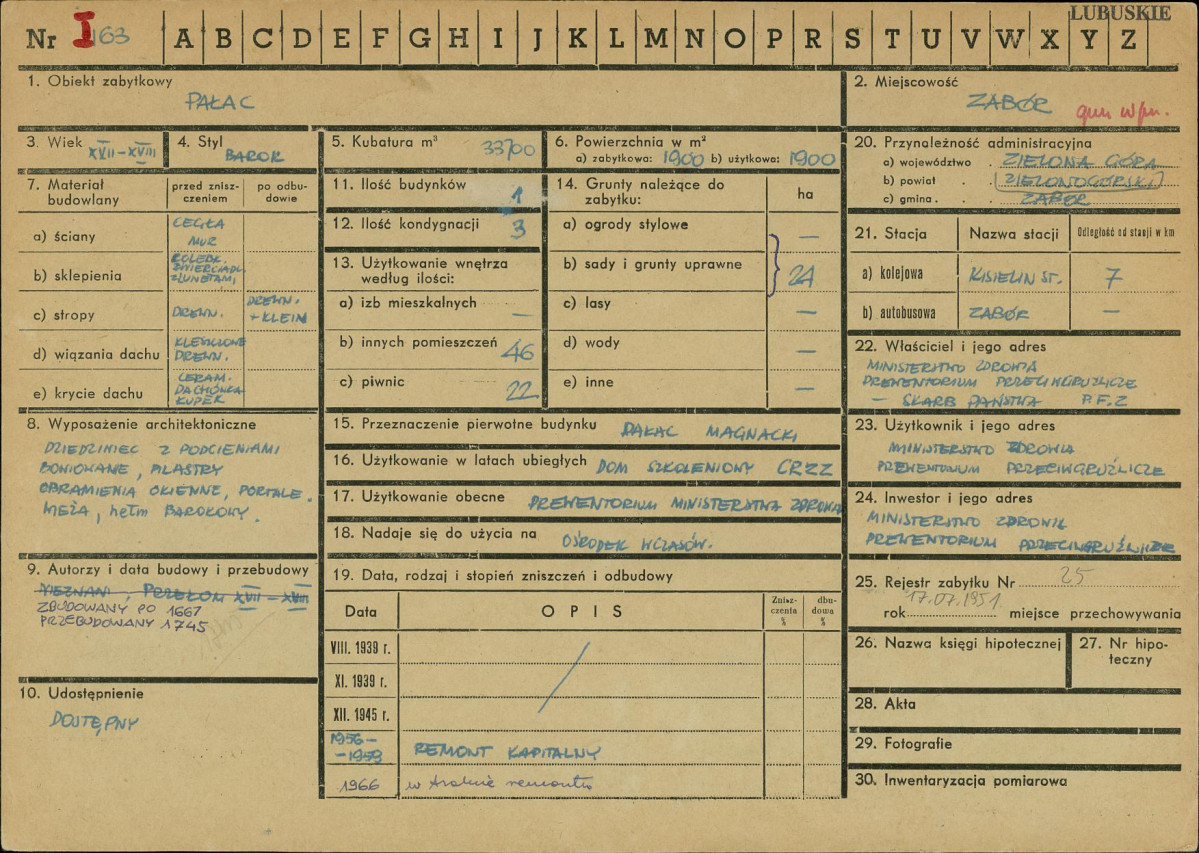 LUBUSKIE
Nr I 163 A B C D E F G H I J K L M N O P R S T U V W X Y Z
1. Obiekt zabytkowy
PAŁAC
2. Miejscowość
ZABÓR
3. Wiek XVII-XVIII
4. Styl BAROK
5. Kubatura m³ 33700
6. Powierzchnia w m²
a) zabytkowa: 1900 b) użytkowa: 1900
7. Materiał budowlany
przed zniszczeniem
po odbudowie
a) ściany
CEGŁA
MUR
b) sklepienia
KOLEBK.
ZWIERCIADL.
Z LUNETAMI
c) stropy
DREWN.
DREWN.
+ KLEIN
d) wiązania dachu
DREWN.
e) krycie dachu
CERAM.
DACHÓWKA
8. Wyposażenie architektoniczne
DZIEDZINIEC Z PODCIENIAMI
BONIOWANE, PILASTRY
OBRAMIENIA OKIENNE, PORTALE.
WIEŻA, hełm BAROKOWY.
9. Autorzy i data budowy i przebudowy
NIEZNANI, PRZEŁOM XVII-XVIII
ZBUDOWANY PO 1667
PRZEBUDOWANY 1745
10. Udostępnienie
DOSTĘPNY
11. Ilość budynków 1
12. Ilość kondygnacji 3
13. Użytkowanie wnętrza
według ilości:
a) izb mieszkalnych —
b) innych pomieszczeń 46
c) piwnic 22
14. Grunty należące do
zabytku:
ha
a) ogrody stylowe —
b) sady i grunty uprawne 24
c) lasy —
d) wody —
e) inne —
15. Przeznaczenie pierwotne budynku PAŁAC MAGNACKI
16. Użytkowanie w latach ubiegłych DOM SZKOLENIOWY CRZZ
17. Użytkowanie obecne PREWENTORIUM MINISTERSTWA ZDROWIA
18. Nadaje się do użycia na OŚRODEK WCZASÓW.
19. Data, rodzaj i stopień zniszczeń i odbudowy
Data
OPIS
Zniszczenia %
dbudowy %
VIII. 1939 r.
XI. 1939 r.
XII. 1945 r.
1956-
-1959 REMONT KAPITALNY
1966 w trakcie remontu
20. Przynależność administracyjna
a) województwo . ZIELONA GÓRA
b) powiat . . ZIELONOGÓRSKI
c) gmina . . ZABÓR
21. Stacja
Nazwa stacji
Odległość od stacji w km
a) kolejowa KISIELIN ST. 7
b) autobusowa ZABÓR —
22. Właściciel i jego adres
MINISTERSTWO ZDROWIA
PREWENTORIUM PRZECIWGRUŹLICZE
— SKARB PAŃSTWA P.F.Z
23. Użytkownik i jego adres
MINISTERSTWO ZDROWIA
PREWENTORIUM PRZECIWGRUŹLICZE
24. Inwestor i jego adres
MINISTERSTWO ZDROWIA
PREWENTORIUM PRZECIWGRUŹLICZE
25. Rejestr zabytku Nr 25
rok 17.07.1951. miejsce przechowywania
26. Nazwa księgi hipotecznej
27. Nr hipoteczny
28. Akta
29. Fotografie
30. Inwentaryzacja pomiarowa